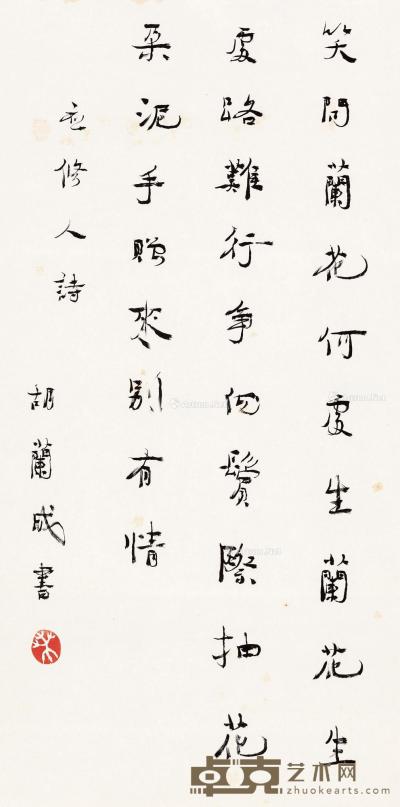 笑問蘭花何處生蘭花生
處路難行爭向鬢際抽花
朵泥手贈來別有情
應修人詩
胡蘭成書
卓克艺术网
zhuokearts.com